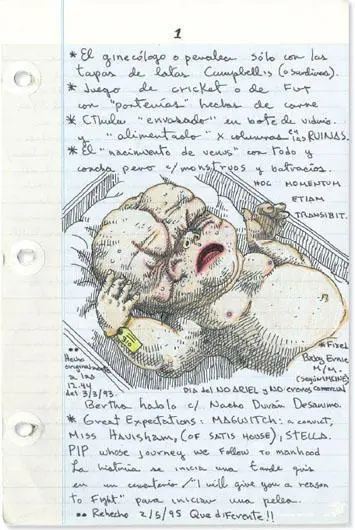 1
* El ginecólogo o penalea sólo con las
tapas de latas Campbell's (o sardinas).
* Juego de cricket o de Fut
con "porterías" hechas de carne
* CThulu "envasado" en bote de vidrio
y "alimentado" x columnas en las RUINAS.
* El "nacimiento de venus" con todo y
concha pero c/monstruos y batracios.
HOC MOMENTUM
ETIAM
TRANSIBIT.
310
••
Hecho
originalmente
a las
12.44
del 3/3/93.
* Fixed
Baby Ernie
M/M.
(según MKINE)
DIA del NO ARIEL y NO
Bertha habla c/ Nacho Durán Desanimo.
* Great Expectations: MAGWITCH: a convict,
MISS Havisham, (OF SATIS HOUSE), STELLA.
PIP whose journey we follow to manhood
La historia se inicia una tarde gris
en un cementerio / "I will give you a reason
to Fight" para iniciar una pelea.
•• Rehecho 2/5/95 Que diferente!!